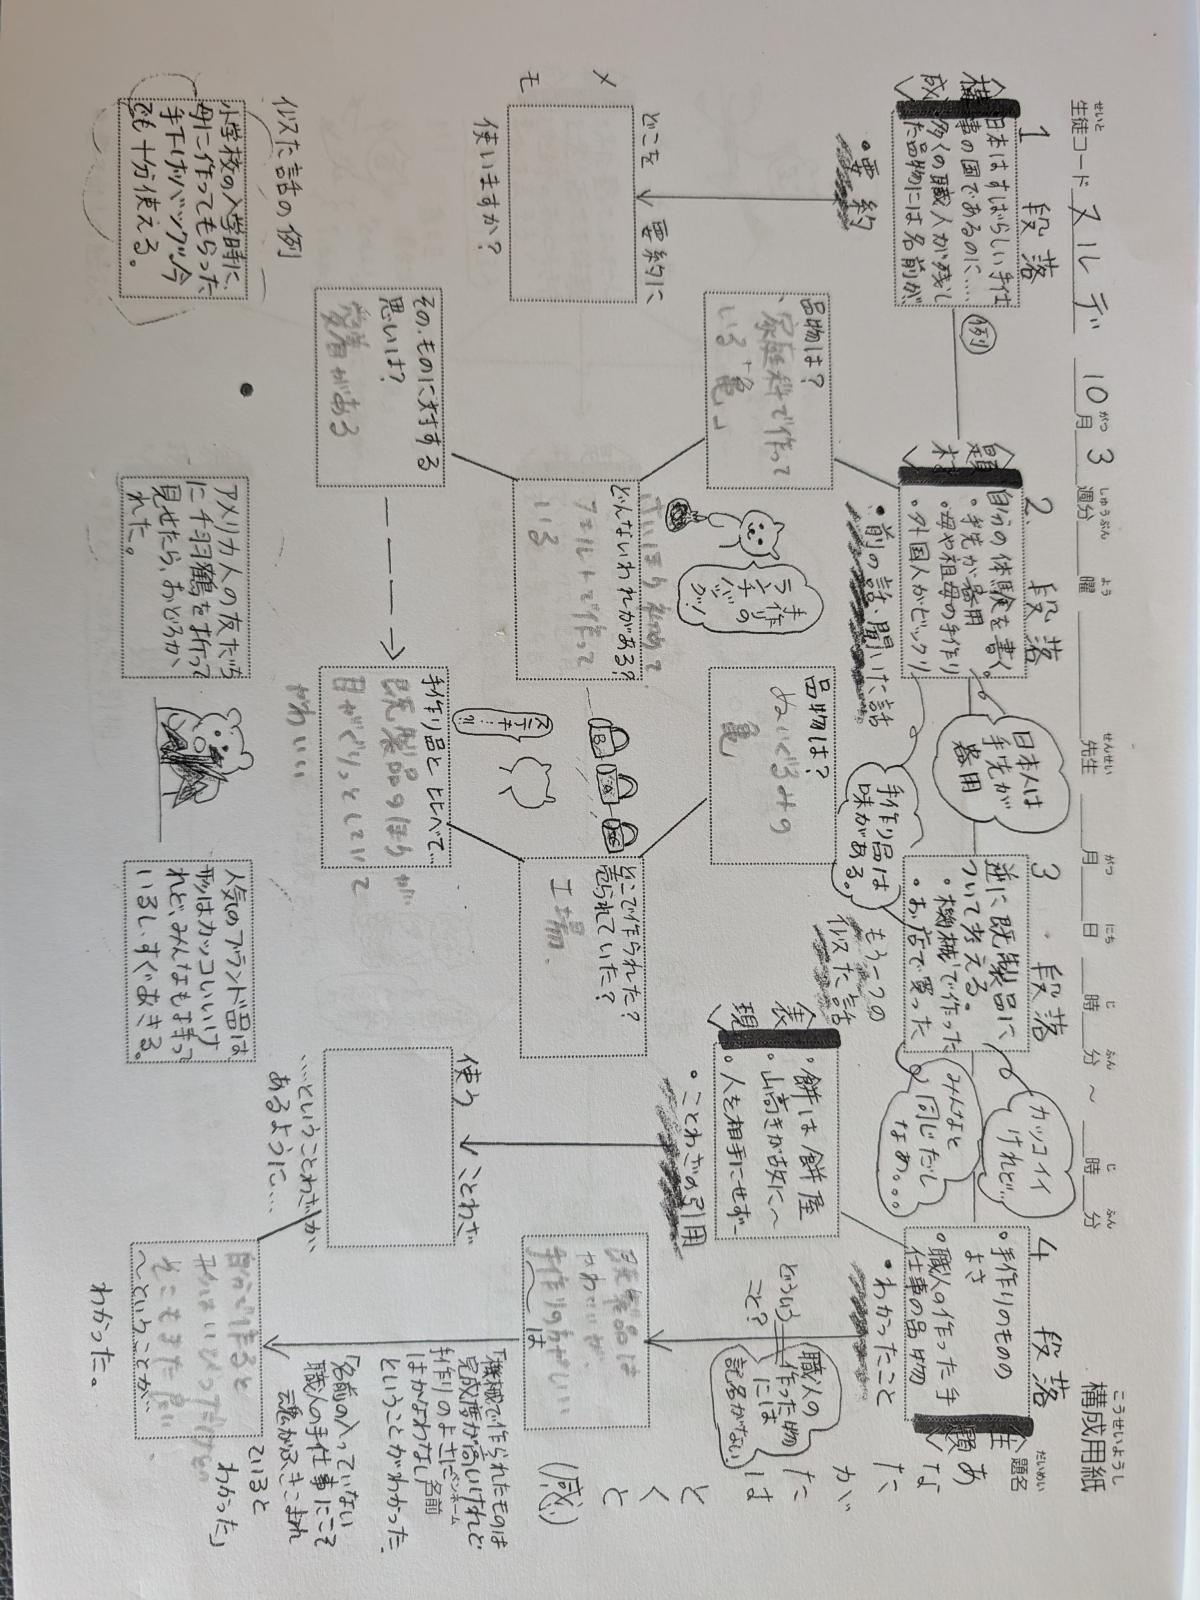 構成用紙
生徒コード ヌルデ 10月3週分 曜 先生 月 日 時 分 ～ 時 分
題名
1 段落
〈構成〉
日本はすばらしい手仕
事の国であるのに……
多くの職人が残し
た品物には名前が、
・要約
どこを 要約に
使いますか?
メ
モ
似た話の例
小学校の入学時に、
母に作ってもらった
手下げバッグ、今
でも十分使える。
例
2. 段落
〈題材〉
自分の体験を書く。
・手先が器用
・母や祖母の手作り
・外国人がビックリ
・前の話・聞いた話
日本人は
手先が
器用
手作り品は
味がある。
品物は?
家庭科で作って
いる
どんないわれがある?
フェルトで作って
いる
手作り
の
そのものに対する
思いは?
愛着がある
アメリカ人の友だち
に千羽鶴を折って
見せたら、おどろか
れた。
3 段落
逆に既製品に
ついて考える。
・機械で作った
・お店で買った
カッコイイ
けれど…
みんなと
同じだし
なあ。。。
もう一つの
似た話
品物は?
ぬいぐるみの
亀
どこで作られた?
売られていた?
工場
手作り品と比べて…
既製品のほうが
目がくりっとしていて
かわいい
ステキ
…?!
人気のブランド品は
形はカッコいいけ
れど、みんなもも持って
いるし、すぐあきる。
〈表現〉
・餅は餅屋
・山高きが故に～
・人を相手にせず～
・ことわざの引用
使う ことわざ
…ということわざが、
あるように…
4 段落
・手作りのものの
よさ
・職人の作った手
仕事の品物
〈主題〉
・わかったこと
どういう
こと?
職人の
作った物
には
記名がない。
既製品は
手作りのほうがいい
～は
～ということが…
わかった。
あ
な
た
が
た
は
と
く
と
(感)
「機械で作られたものは
完成度が高いけれど
手作りのよさに
はかなわない」
ということがわかった。
名前
ペンネーム
「名前の入っていない
職人の手仕事にこそ
魂がふきこまれ
ていると
わかった」